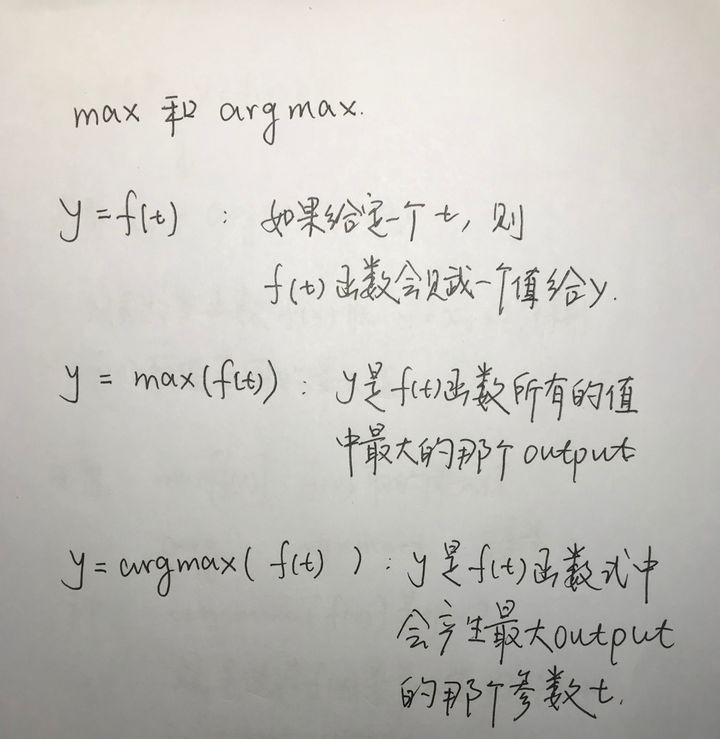 max 和 argmax.
y = f(t) : 如果给定一个 t, 则
f(t) 函数会赋一个值给y.
y = max(f(t)) : y是f(t)函数所有的值
中最大的那个output
y = argmax( f(t) ) : y是f(t)函数式中
会产生最大output
的那个参数t.